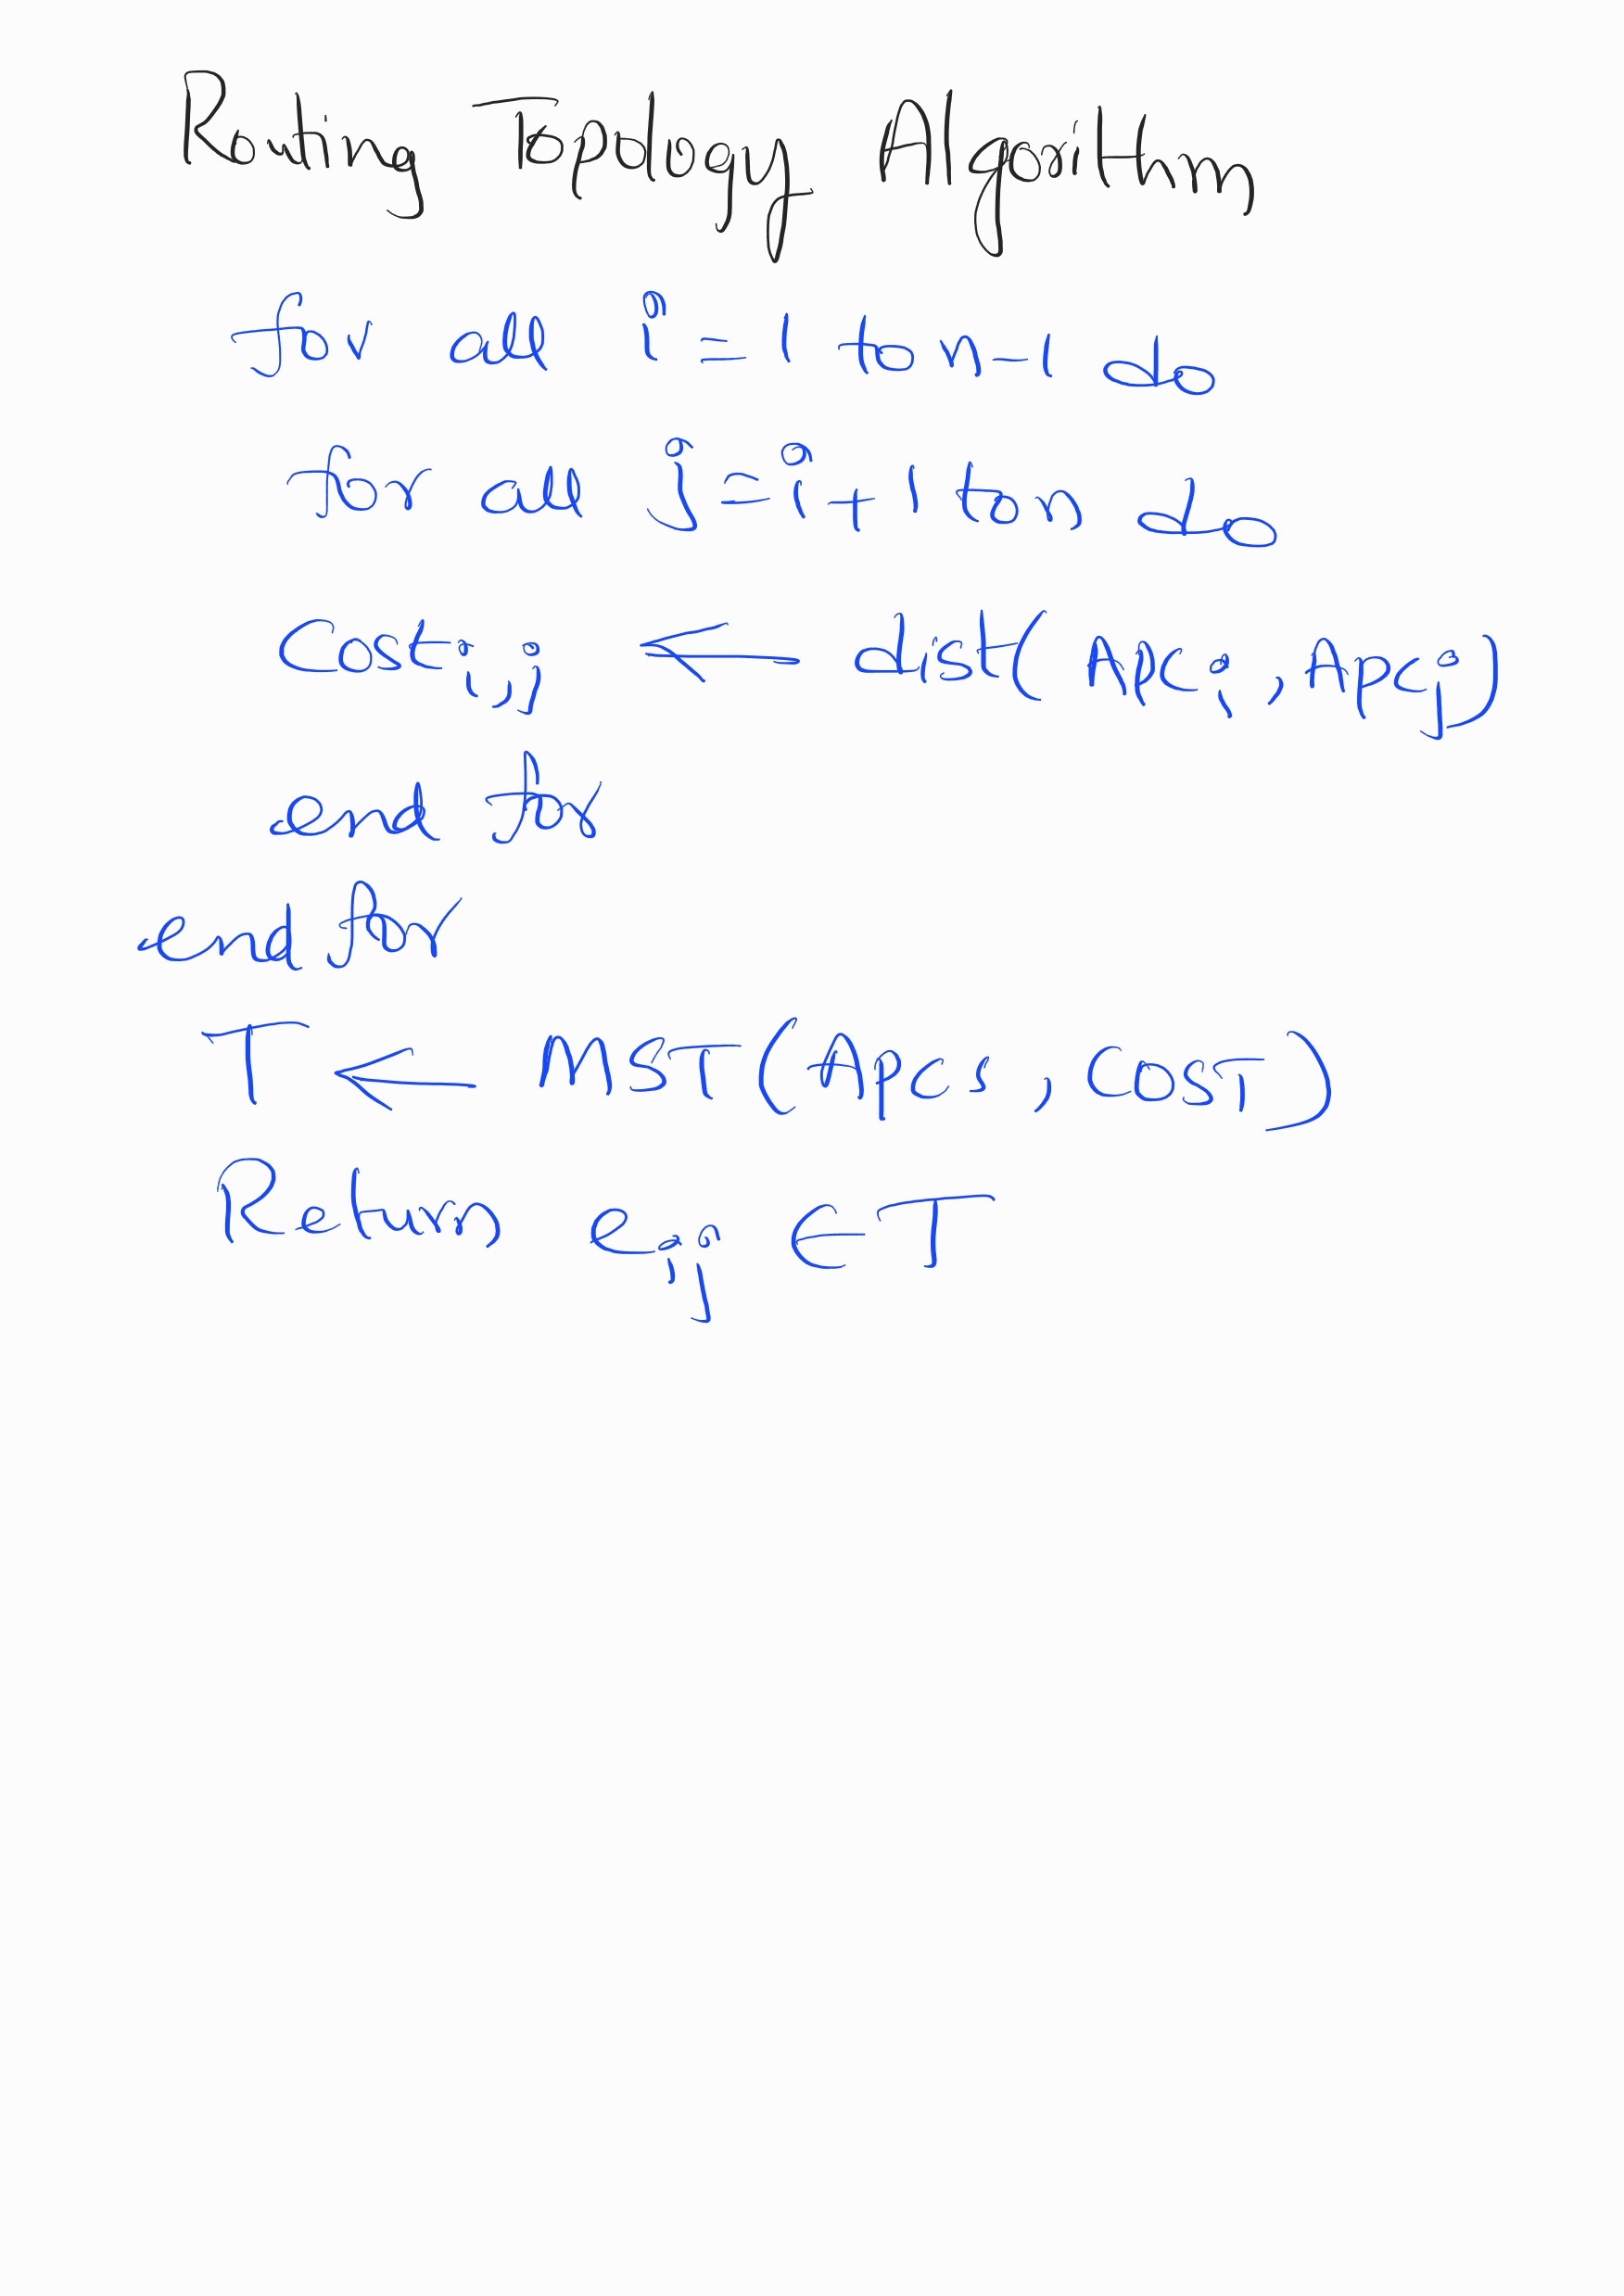 Routing Topology Algorithm
for all i = 1 to n-1 do
for all j = i + 1 to n do
Cost i,j ← dist( APC i , APC j )
end for
end for
T ← MST (APCs , COST)
Return e ij ∈ T